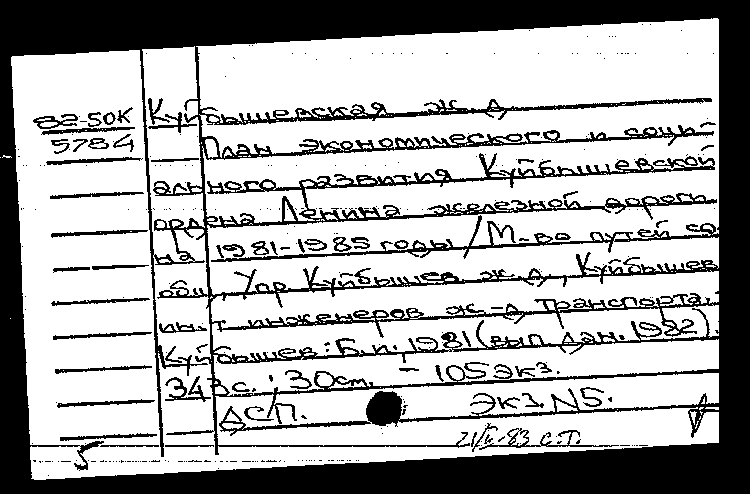 82-50К Куйбышевская ж. д.
5784 План экономического и соци-
ального развития Куйбышевской
ордена Ленина железной дороги
на 1981-1985 годы / М-во путей со
общ., Упр Куйбышев ж. д., Куйбышев
ин-т инженеров ж.-д транспорта.-
Куйбышев: Б. и., 1981 (вып. дан. 1982).
343 с.; 30 см. - 105 экз.
ДСП. Экз. N5.
5 -83 с.т.